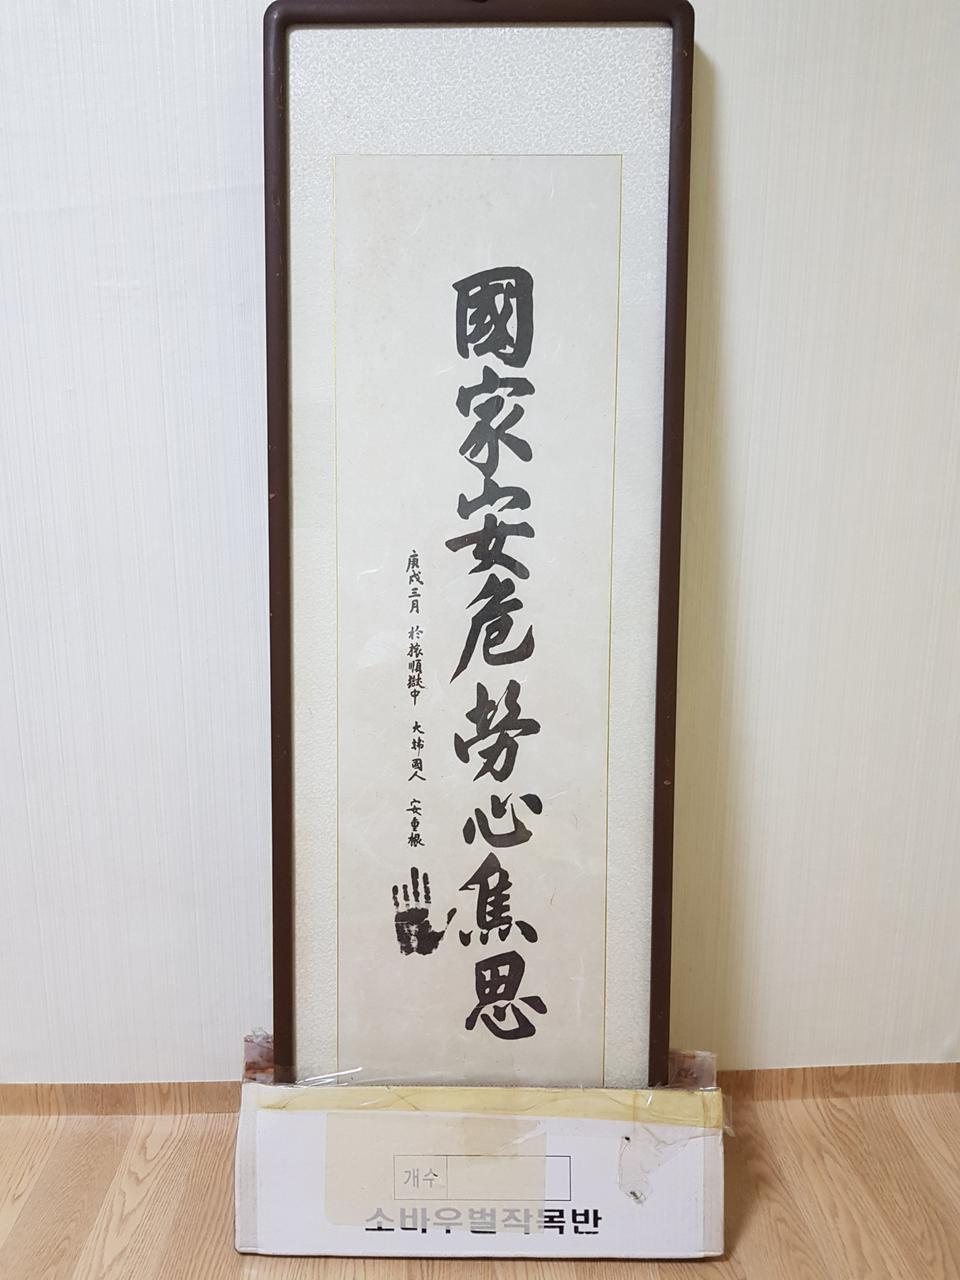 國家安危勞心焦思
庚戌三月 於旅順獄中 大韓國人 安重根
개수
소바우벌작목반